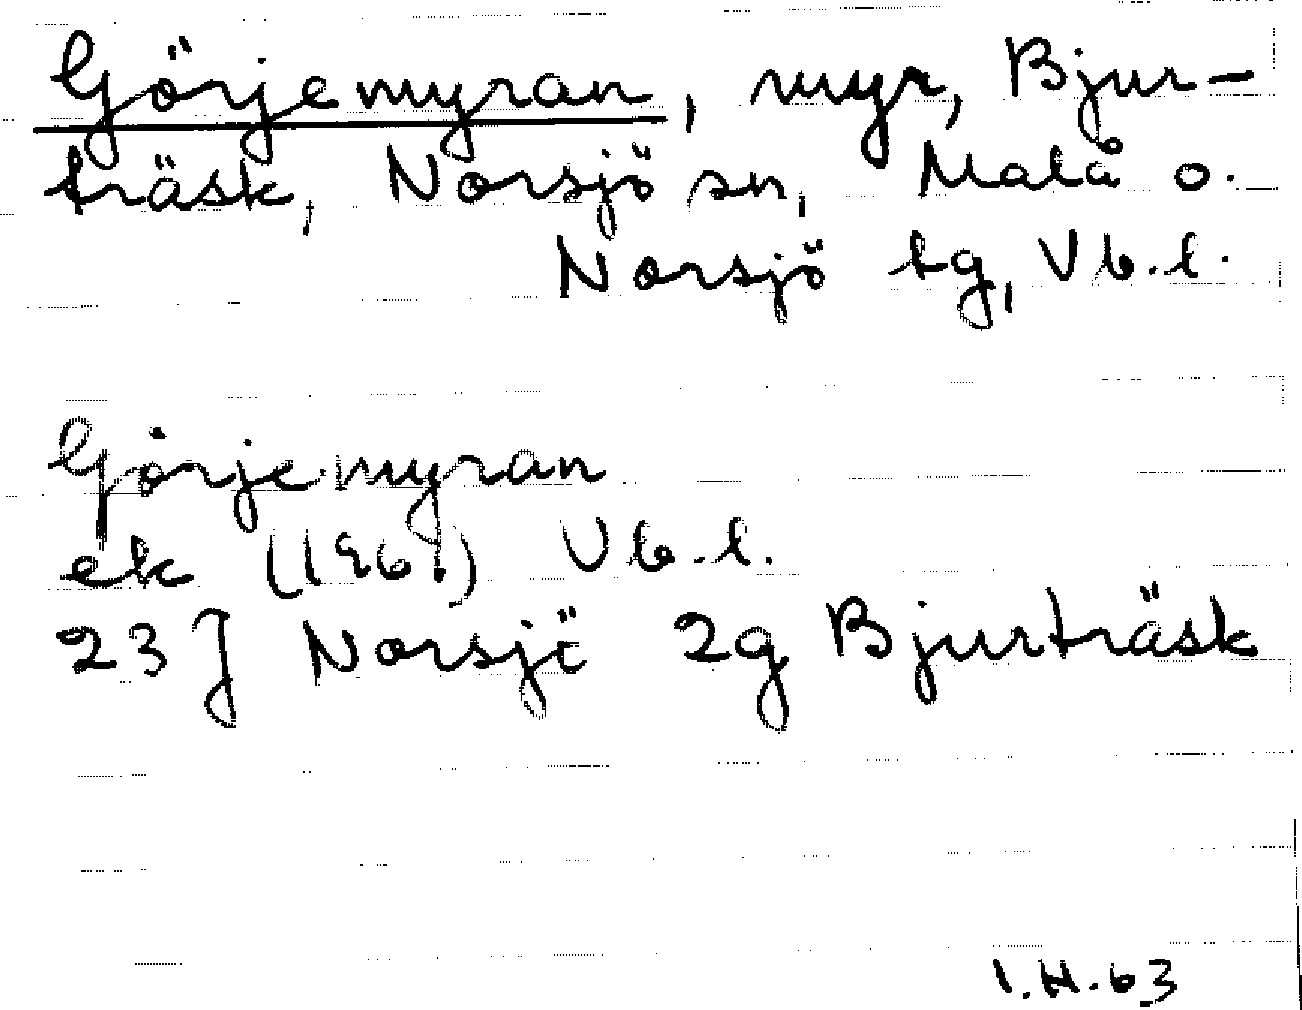 Görjemyran, myr, Bjur-
träsk, Norsjö sn, Malå o.
Norsjö tg, Vb.l.
Görjemyran
ek (1961) Vb.l.
23 J Norsjö 2g Bjurträsk
I.H.63